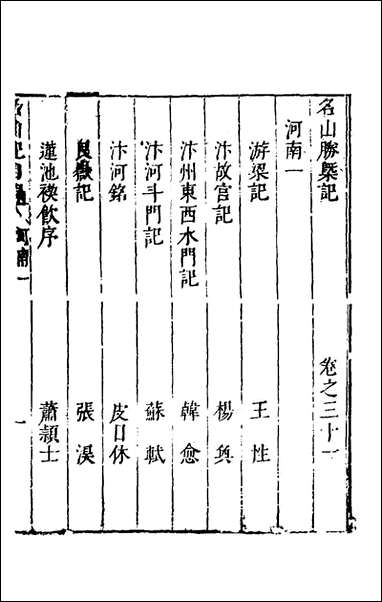 名山勝槩記 卷之三十一
河南一
游梁記 王性
汴故宮記 楊奐
汴州東西水門記 韓愈
汴河斗門記 蘇軾
汴河銘 皮日休
艮嶽記 張淏
蓮池禊飲序 蕭頴士
河南一 一